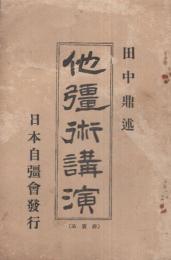 田中鼎述
他彊術講演
日本自彊會發行